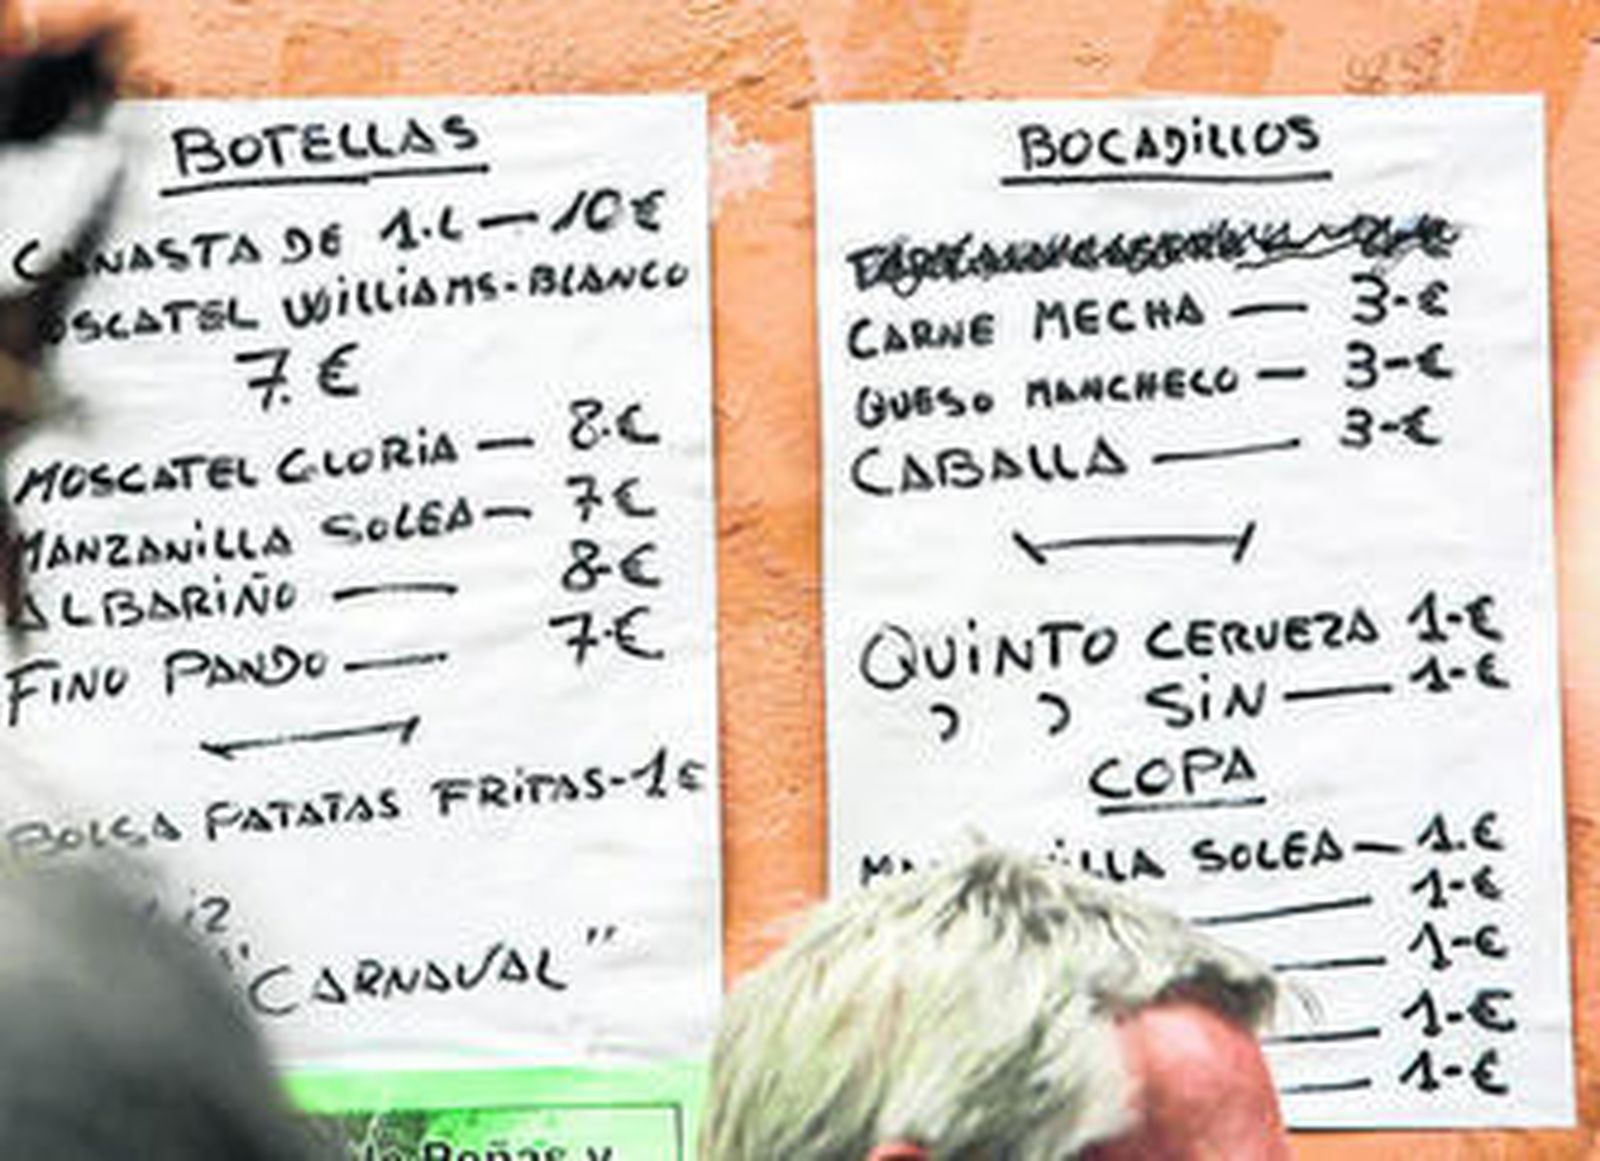 BOTELLAS
CANASTA DE 1.L — 10€
MOSCATEL WilliAMS-BLANCO
7.€
MOSCATEL GLORIA — 8.€
MANZANILLA SOLEA — 7€
ALBARIÑO — 8-€
FINO PANDO — 7.€
BOLSA PATATAS FRITAS-1€
"CARNAVAL"
de Peñas y
BOCADILLOS
CARNE MECHA — 3-€
QUESO MANCHEGO — 3-€
CABALLA — 3-€
QUINTO CERVEZA 1-€
" " SIN — 1-€
COPA
MANZANILLA SOLEA — 1.€
— 1-€
— 1-€
— 1-€
— 1-€